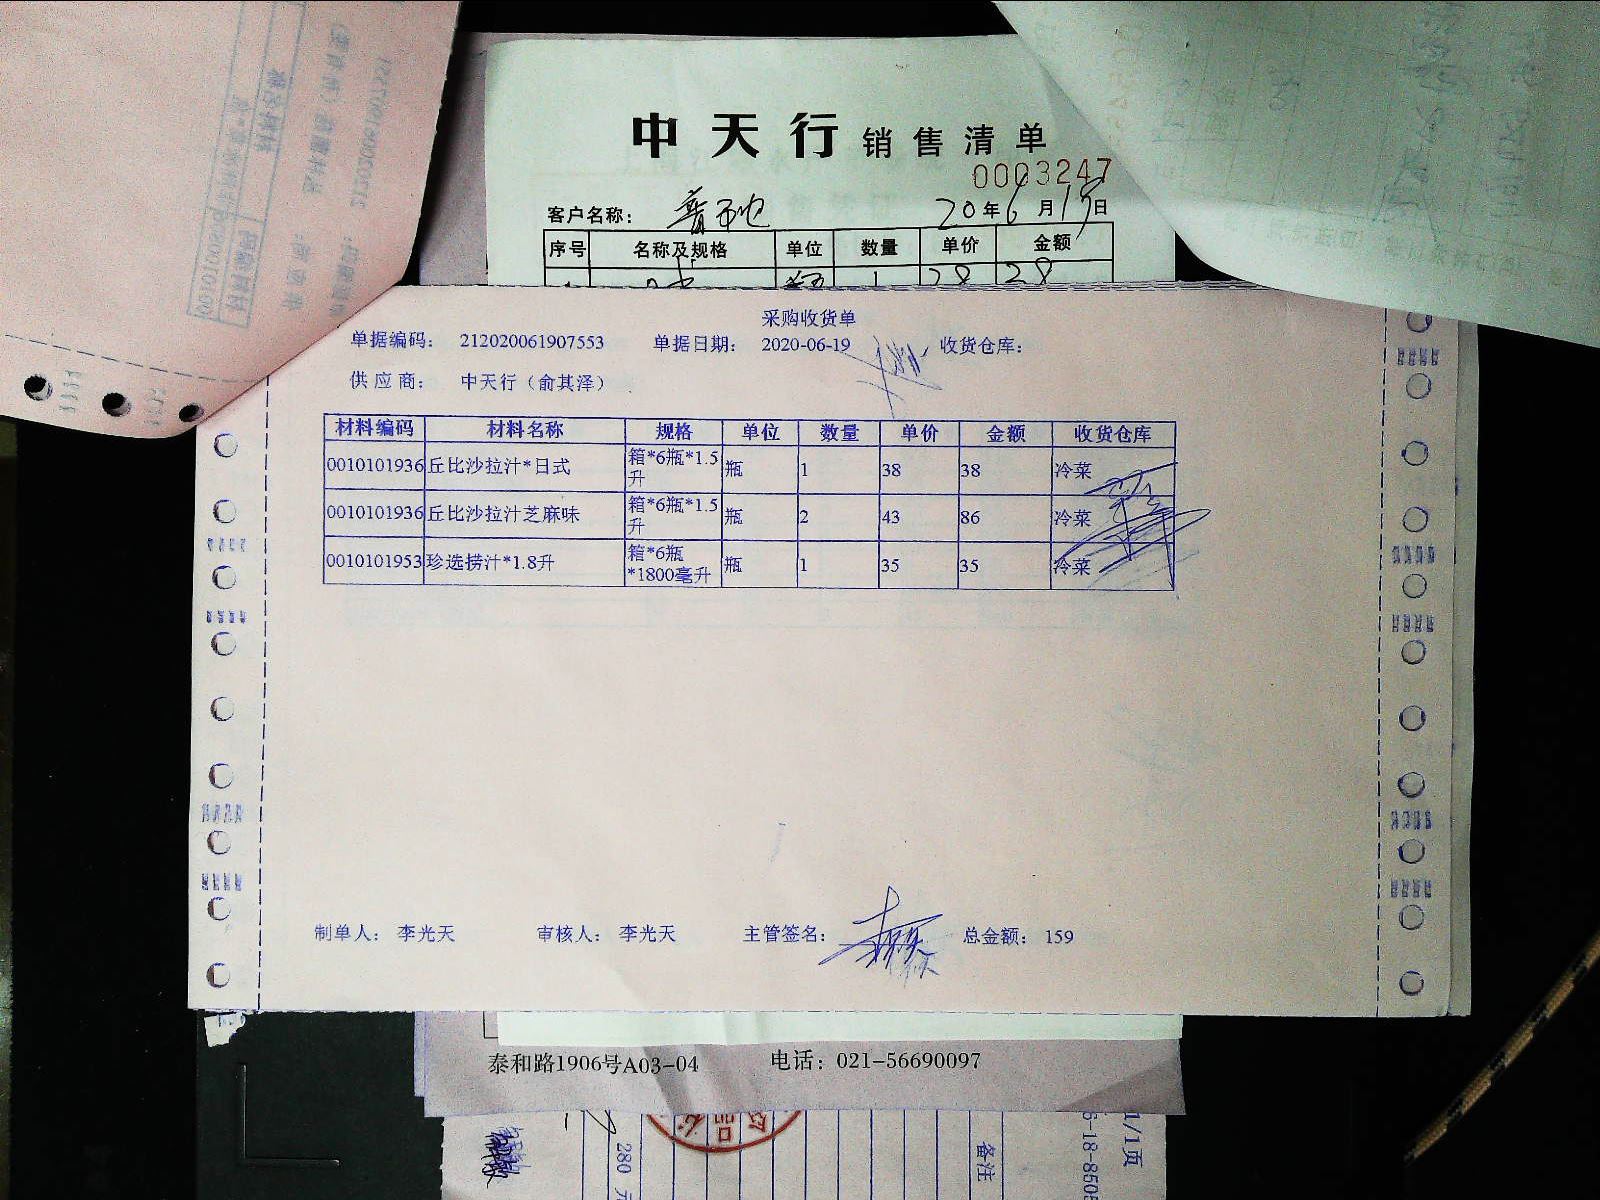 中天行 销售清单
0003247
客户名称:
20年6月19日
序号 名称及规格 单位 数量 单价 金额
瓶 1 28 28
采购收货单
单据编码: 212020061907553 单据日期: 2020-06-19 收货仓库:
供应商: 中天行（俞其泽）
材料编码 材料名称 规格 单位 数量 单价 金额 收货仓库
0010101936 丘比沙拉汁*日式 箱*6瓶*1.5升 瓶 1 38 38 冷菜
0010101936 丘比沙拉汁芝麻味 箱*6瓶*1.5升 瓶 2 43 86 冷菜
0010101953 珍选捞汁*1.8升 箱*6瓶*1800毫升 瓶 1 35 35 冷菜
制单人: 李光天 审核人: 李光天 主管签名: 总金额: 159
泰和路1906号A03-04 电话: 021-56690097
280 元
备注
1/1页